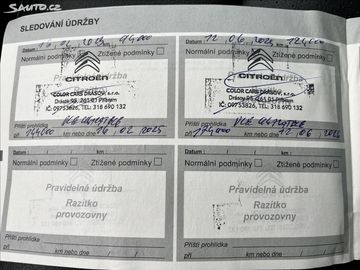 Sauto.cz
SLEDOVÁNÍ ÚDRŽBY
Datum: 16. 02. 2023 94000
Normální podmínky Ztížené podmínky
CITROËN
COLOR CARS DRÁSOV, s.r.o.
Drásov 98, 261 01 Příbram
IČ: 09753826, TEL. 318 690 132
Příští prohlídka
při 124000 km nebo dne 16 02 2025
Datum: 12. 06. 2024 124000
Normální podmínky Ztížené podmínky
CITROËN
COLOR CARS DRÁSOV, s.r.o.
Drásov 98, 261 01 Příbram
IČ: 09753826, TEL. 318 690 132
Příští prohlídka
při km nebo dne 12 06
Datum: km
Normální podmínky Ztížené podmínky
Pravidelná údržba
Razítko
provozovny
Příští prohlídka
při km nebo dne
Datum: km
Normální podmínky Ztížené podmínky
Pravidelná údržba
Razítko
provozovny
Příští prohlídka
při km nebo dne